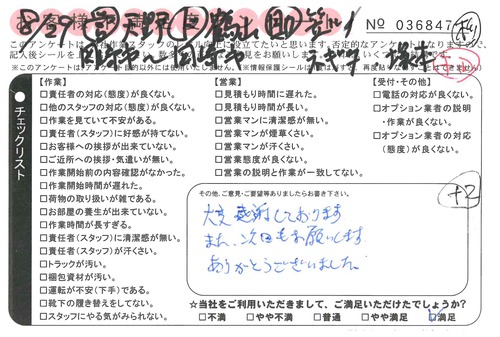 8/29
No 036847
このアンケートは
記入後シールを
※このアンケートは
チェックリスト
【作業】
□責任者の対応(態度)が良くない。
□他のスタッフの対応(態度)が良くない。
□作業を見ていて不安がある。
□責任者(スタッフ)に好感が持てない。
□お客様への挨拶が出来ていない。
□ご近所への挨拶・気遣いが無い。
□作業開始前の内容確認がなかった。
□作業開始時間が遅れた。
□荷物の取り扱いが雑である。
□お部屋の養生が出来ていない。
□作業時間が長すぎる。
□責任者(スタッフ)に清潔感が無い。
□責任者(スタッフ)が汗くさい。
□トラックが汚い。
□梱包資材が汚い。
□運転が不安(下手)である。
□靴下の履き替えをしてない。
□スタッフにやる気がみられない。
【営業】
□見積もり時間に遅れた。
□見積もり時間が長い。
□営業マンに清潔感が無い。
□営業マンが煙草くさい。
□営業マンが汗くさい。
□営業態度が良くない。
□営業の説明と作業が一致してない。
【受付・その他】
□電話の対応が良くない。
□オプション業者の説明
・作業が良くない。
□オプション業者の対応
(態度)が良くない。
その他、ご意見・ご要望等ありましたらお書き下さい。
大変感謝しております
また、次回もお願いします。
ありがとうございました。
+2
☆当社をご利用いただきまして、ご満足いただけたでしょうか?
□不満 □やや不満 □普通 □やや満足 □満足